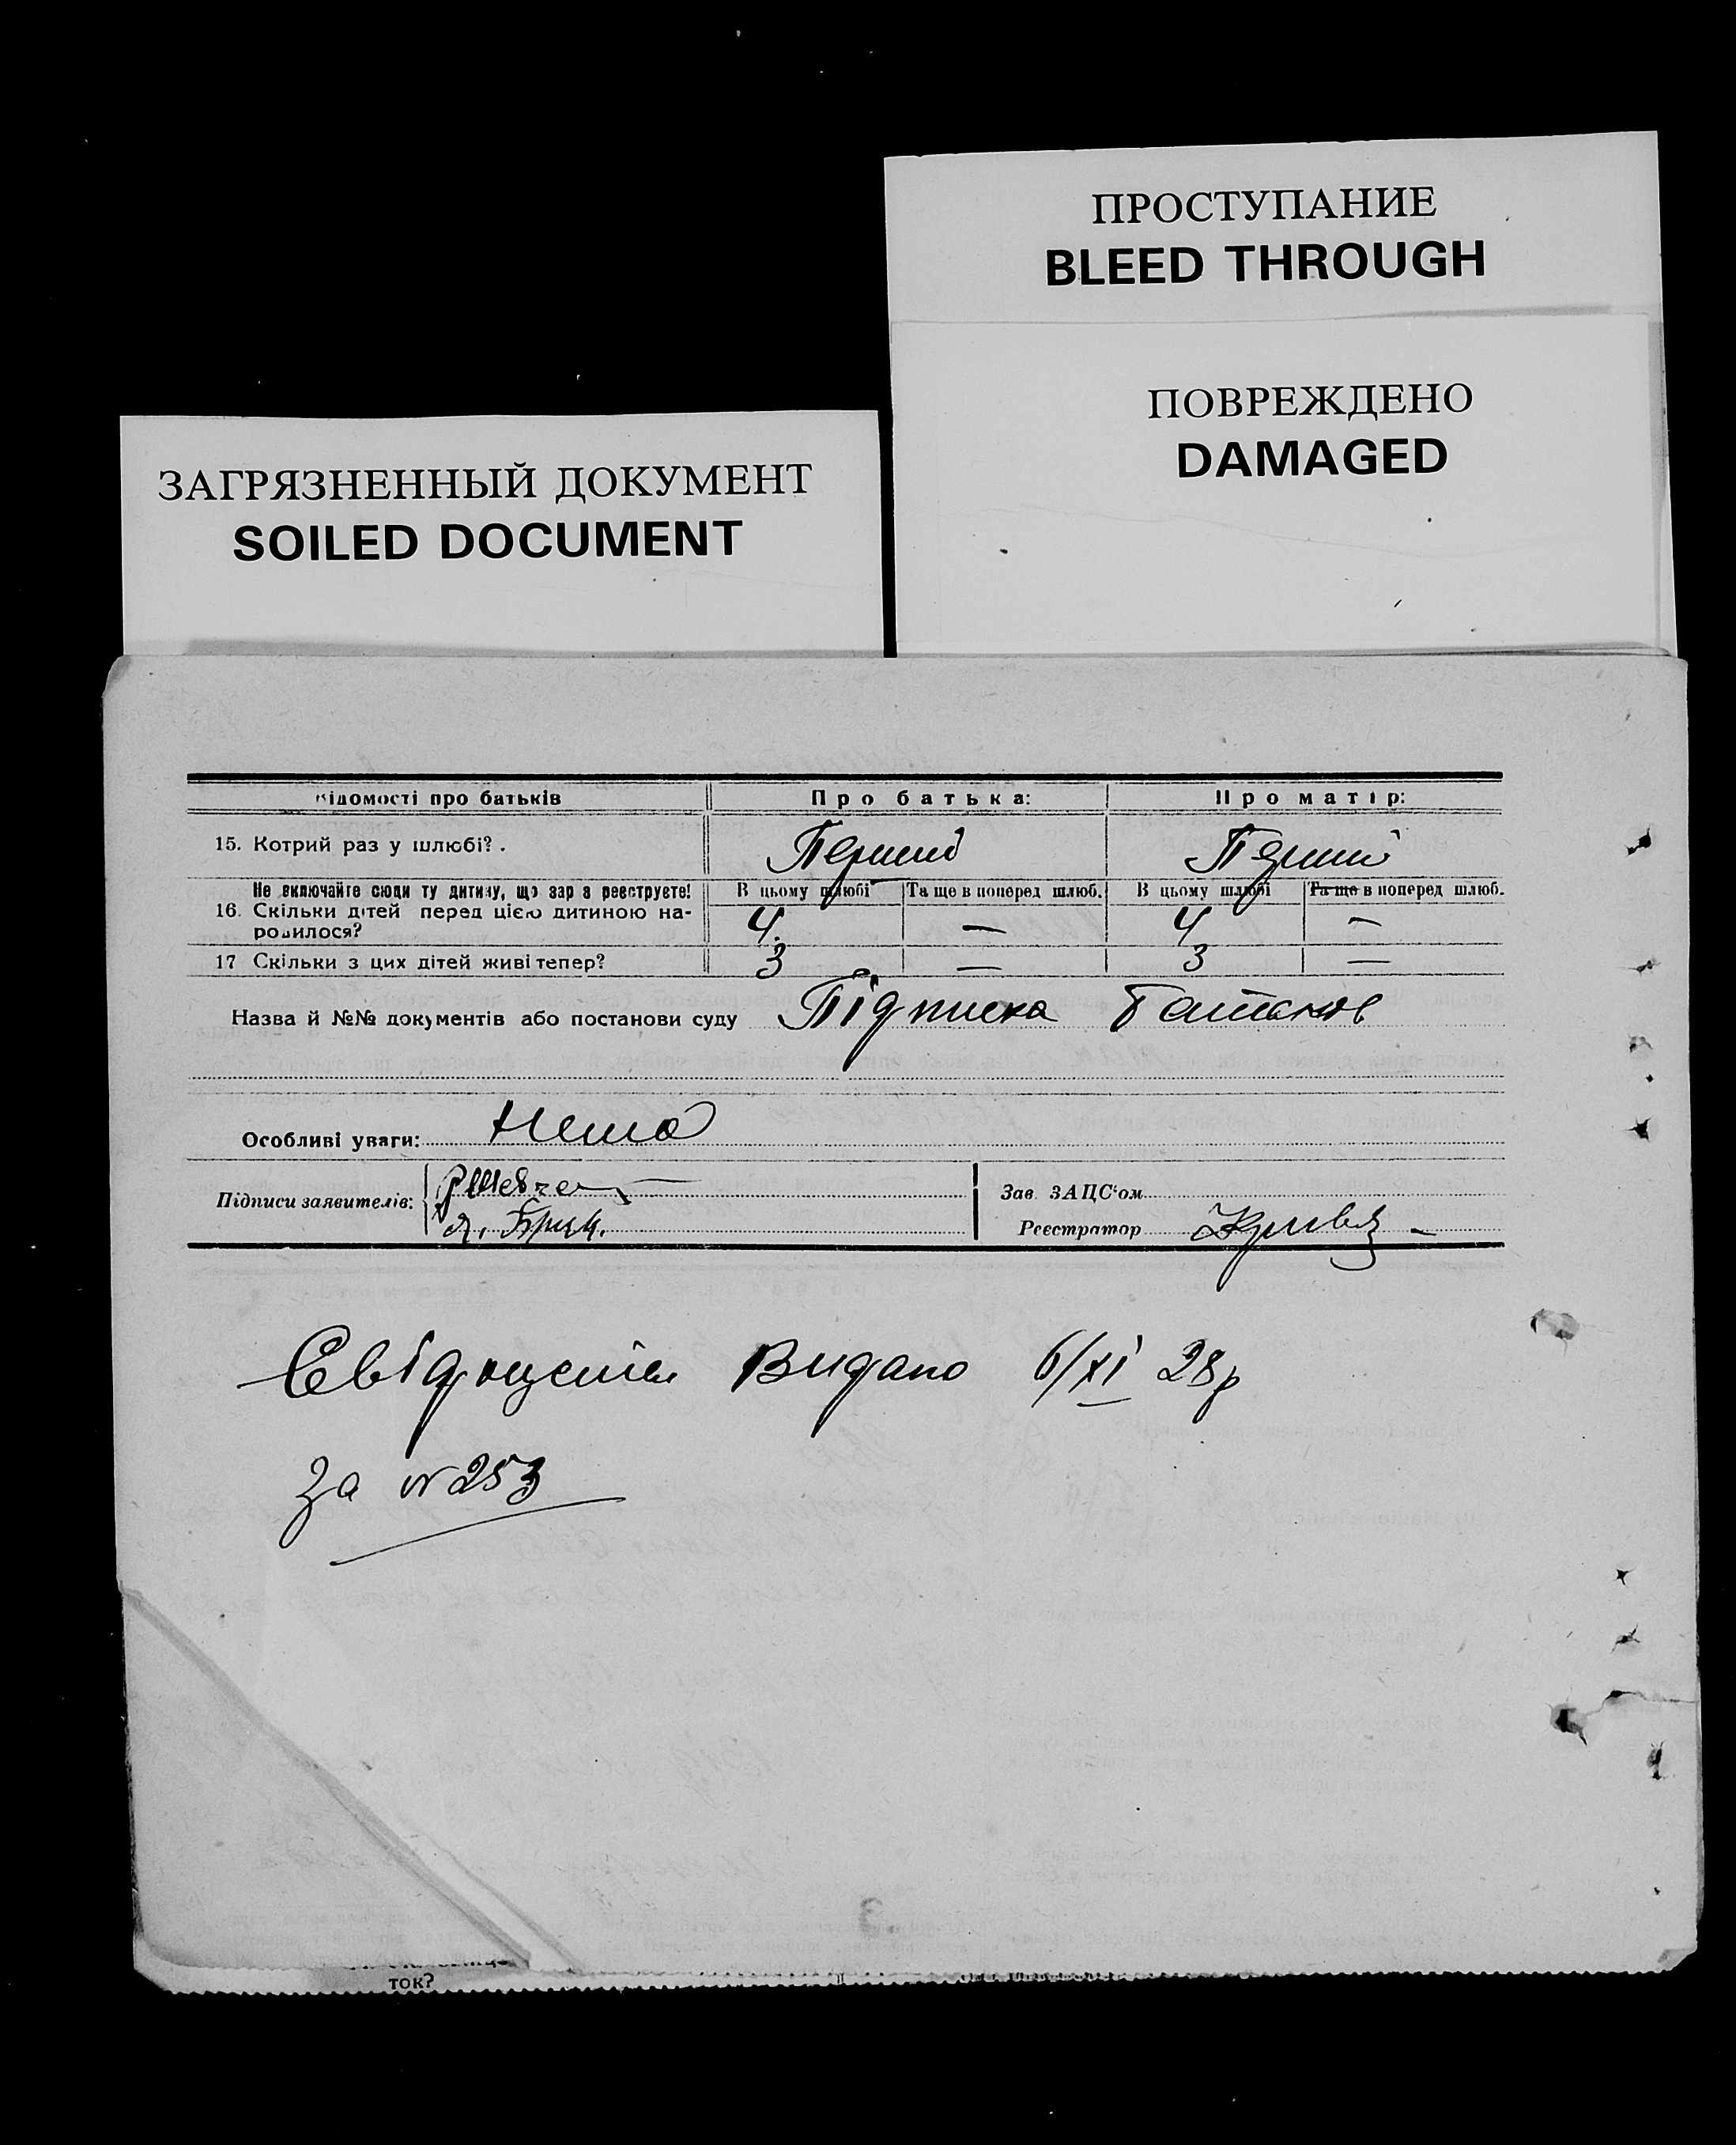 ПРОСТУПАНИЕ
BLEED THROUGH
ПОВРЕЖДЕНО
DAMAGED
ЗАГРЯЗНЕННЫЙ ДОКУМЕНТ
SOILED DOCUMENT
Відомості про батьків Про батька: Про матір:
15. Котрий раз у шлюбі? . Перший Перший
Не включайте сюди ту дитину, що зараз реєструєте! В цьому шлюбі Та ще в поперед шлюб. В цьому шлюбі Та ще в поперед шлюб.
16. Скільки дітей перед цією дитиною на- 4. — 4 —
родилося?
17 Скільки з цих дітей живі тепер? 3 — 3 —
Назва й №№ документів або постанови суду Підписка батьков
Особливі уваги: Нема
Підписи заявителів:
Зав. ЗАЦС'ом
Реєстратор
Видано 6/XI 28 р
За № 253
ток?
3